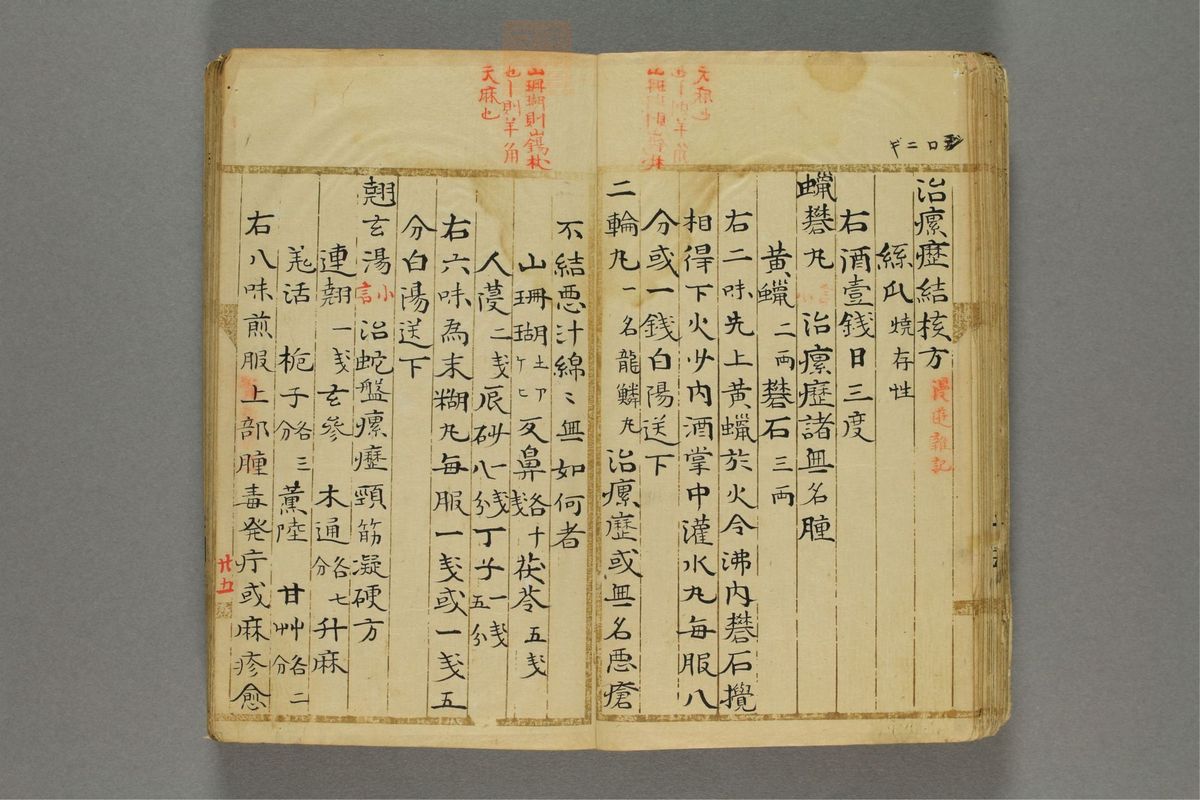 治瘰癧結核方
漫遊雜記
絲瓜 燒存性
右酒壹錢日三度
蠟礬丸 治瘰癧諸無名腫
黄蠟二両 礬石三両
右二味先上黄蠟於火令沸内礬石攪
相得下火少内酒掌中灌水丸每服八
分或一錢白陽送下
二輪丸 一名龍鱗丸 治瘰癧或無名悪瘡
不結悪汁綿〻無如何者
山珊瑚
茯苓五戔
人葠二戔 辰砂八分 丁子一戔五分
右六味為末糊丸每服一戔或一戔五
分白陽送下
翹玄湯 治蛇盤瘰癧頸筋凝硬方
連翹一戔 玄參 木通各七分 升麻
羌活 梔子各三分 薫陸 甘艸各二分
右八味煎服上部腫毒発疔或麻疹愈
山珊瑚則
也 則羊角
天麻也
廿五